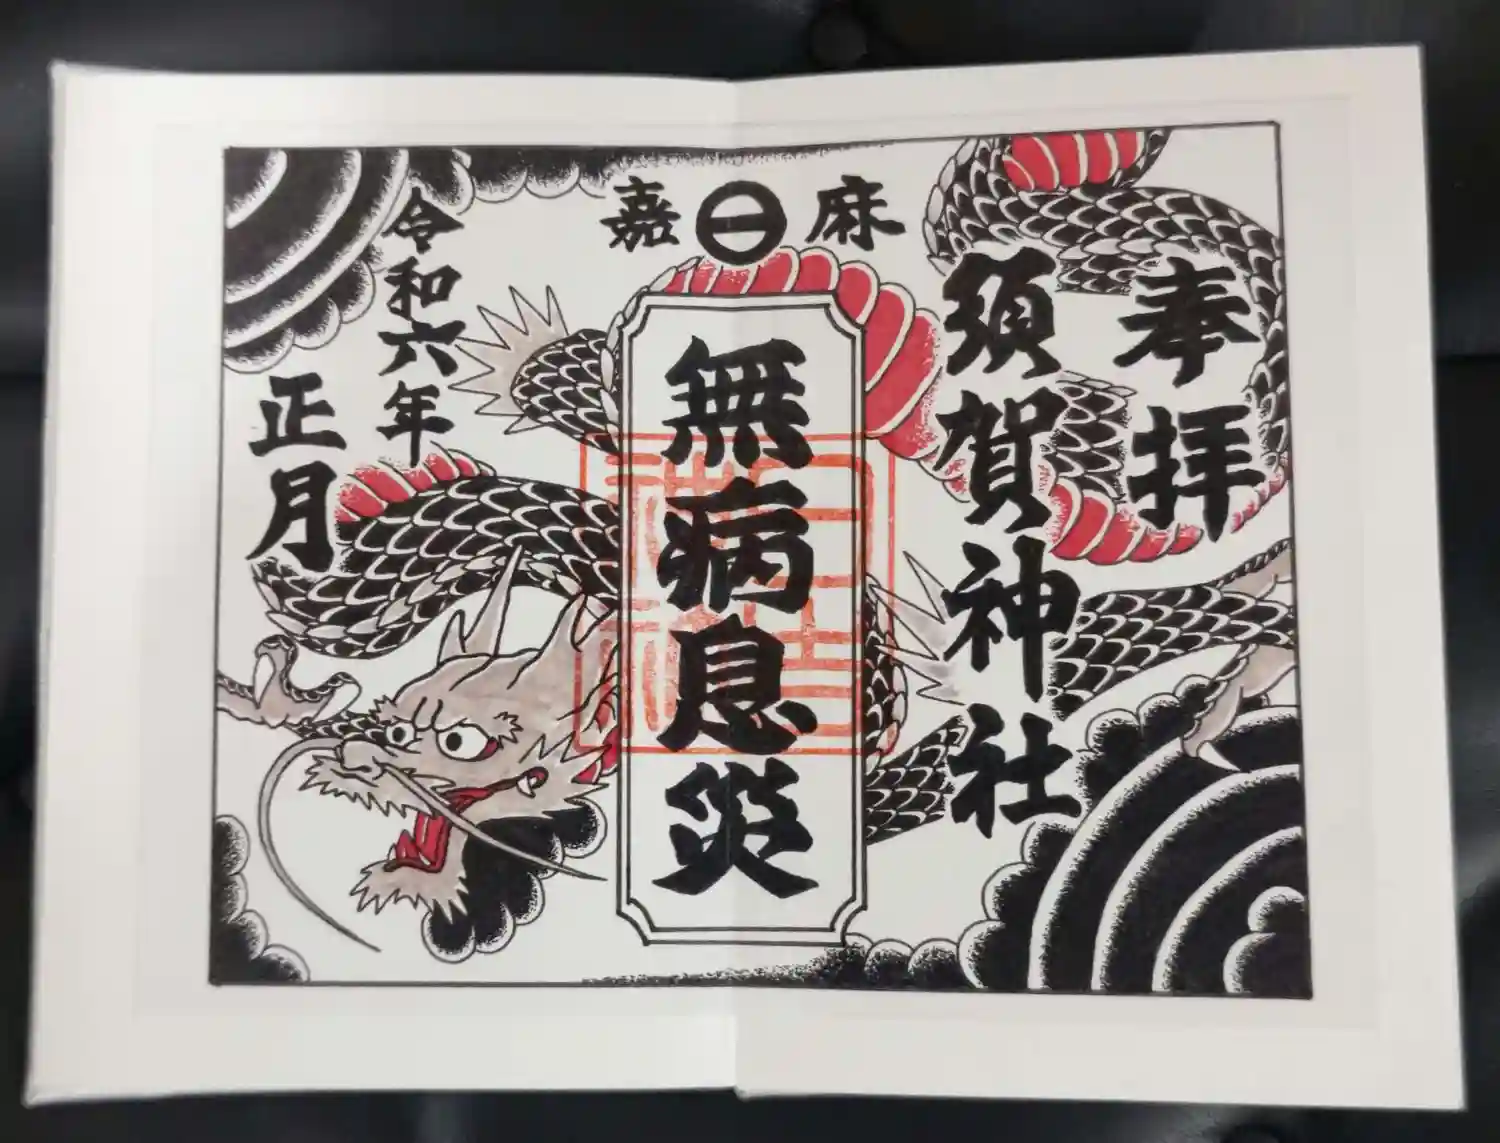 奉拝
須賀神社
麻㊀嘉
無病息災
令和六年
正月